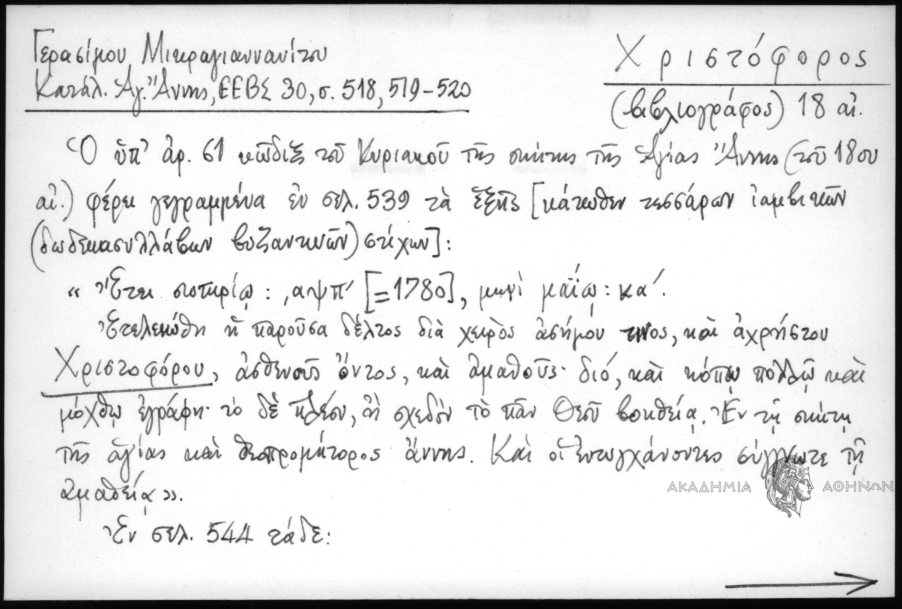 Γερασίμου Μικραγιαννανίτου
Κατάλ. Ἁγ. Ἄννης, ΕΕΒΣ 30, σ. 518, 519-520
Χριστόφορος
(βιβλιογράφος) 18 αἰ.
Ὁ ὑπ' ἀρ. 61 κῶδιξ τοῦ Κυριακοῦ τῆς σκήτης τῆς Ἁγίας Ἄννης (τοῦ 18ου
αἰ.) φέρει γεγραμμένα ἐν σελ. 539 τὰ ἑξῆς [κάτωθεν τεσσάρων ἰαμβικῶν
(δωδεκασυλλάβων βυζαντινῶν) στίχων]:
« Ἔτει σωτηρίῳ : ͵αψπ' [=1780], μηνὶ μαΐῳ : κα'.
Ἐτελειώθη ἡ παροῦσα δέλτος διὰ χειρὸς ἀσήμου τινος, καὶ ἀχρήστου
Χριστοφόρου, ἀσθενοῦς ὄντος, καὶ ἀμαθοῦς· διό, καὶ κόπῳ πολλῷ καὶ
μόχθῳ ἐγράφη· τὸ δὲ πλεῖον, ἢ σχεδὸν τὸ πᾶν Θεοῦ βοηθείᾳ. Ἐν τῇ σκήτῃ
τῆς ἁγίας καὶ θεοπρομήτορος ἄννης. Καὶ οἱ ἐντυγχάνοντες σύγγνωτε τῇ
ἀμαθείᾳ».
Ἐν σελ. 544 τάδε:
ΑΚΑΔΗΜΙΑ ΑΘΗΝΩΝ